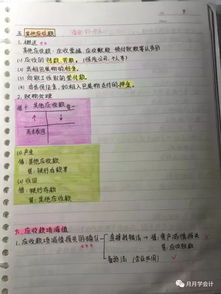 五、其他应收款
1.概述
其他应收款：应收票据、应收账款、预付账款等以外的
(1) 应收的赔款、罚款。(保险公司、个人等)
(2) 出租包装物的租金。
(3) 应向职工收取的垫付款
(4) 存出保证金，如租入包装物支付的押金。
2. 账务处理
借 + 其他应收款 - 贷
(1) 产生
借：其他应收款
贷：银行存款等
(2) 收回
借：银行存款
贷：其他应收款
六、应收款项减值
1.应收款项减值损失的确认
直接转销法→借：资产减值损失
贷：应收账款
备抵法 (企业采用)
月月学会计